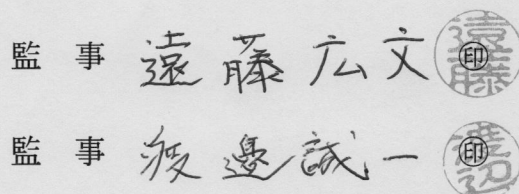 監事 遠藤広文 ㊞ 遠藤
監事 渡邊誠一 ㊞ 渡辺